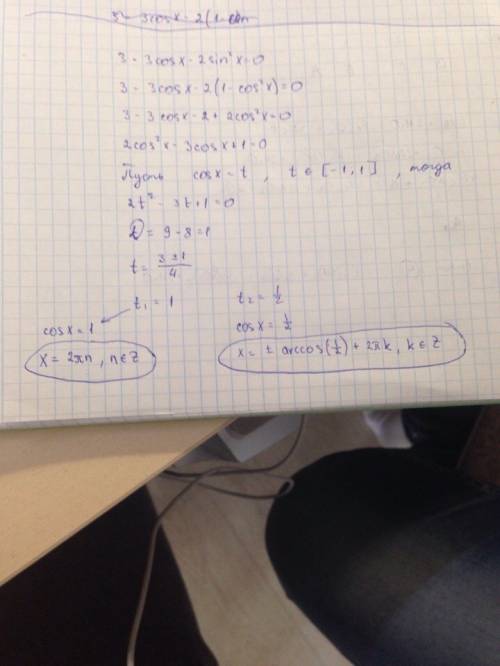 3 - 3cosx - 2(1 -
3 - 3cosx - 2sin²x = 0
3 - 3cosx - 2(1 - cos²x) = 0
3 - 3cosx - 2 + 2cos²x = 0
2cos²x - 3cosx + 1 = 0
Пусть cosx = t, t ∈ [-1, 1], тогда
2t² - 3t + 1 = 0
D = 9 - 8 = 1
t = (3 ± 1)/4
t₁ = 1
cosx = 1
x = 2πn, n ∈ Z
t₂ = 1/2
cosx = 1/2
x = ± arccos(1/2) + 2πk, k ∈ Z